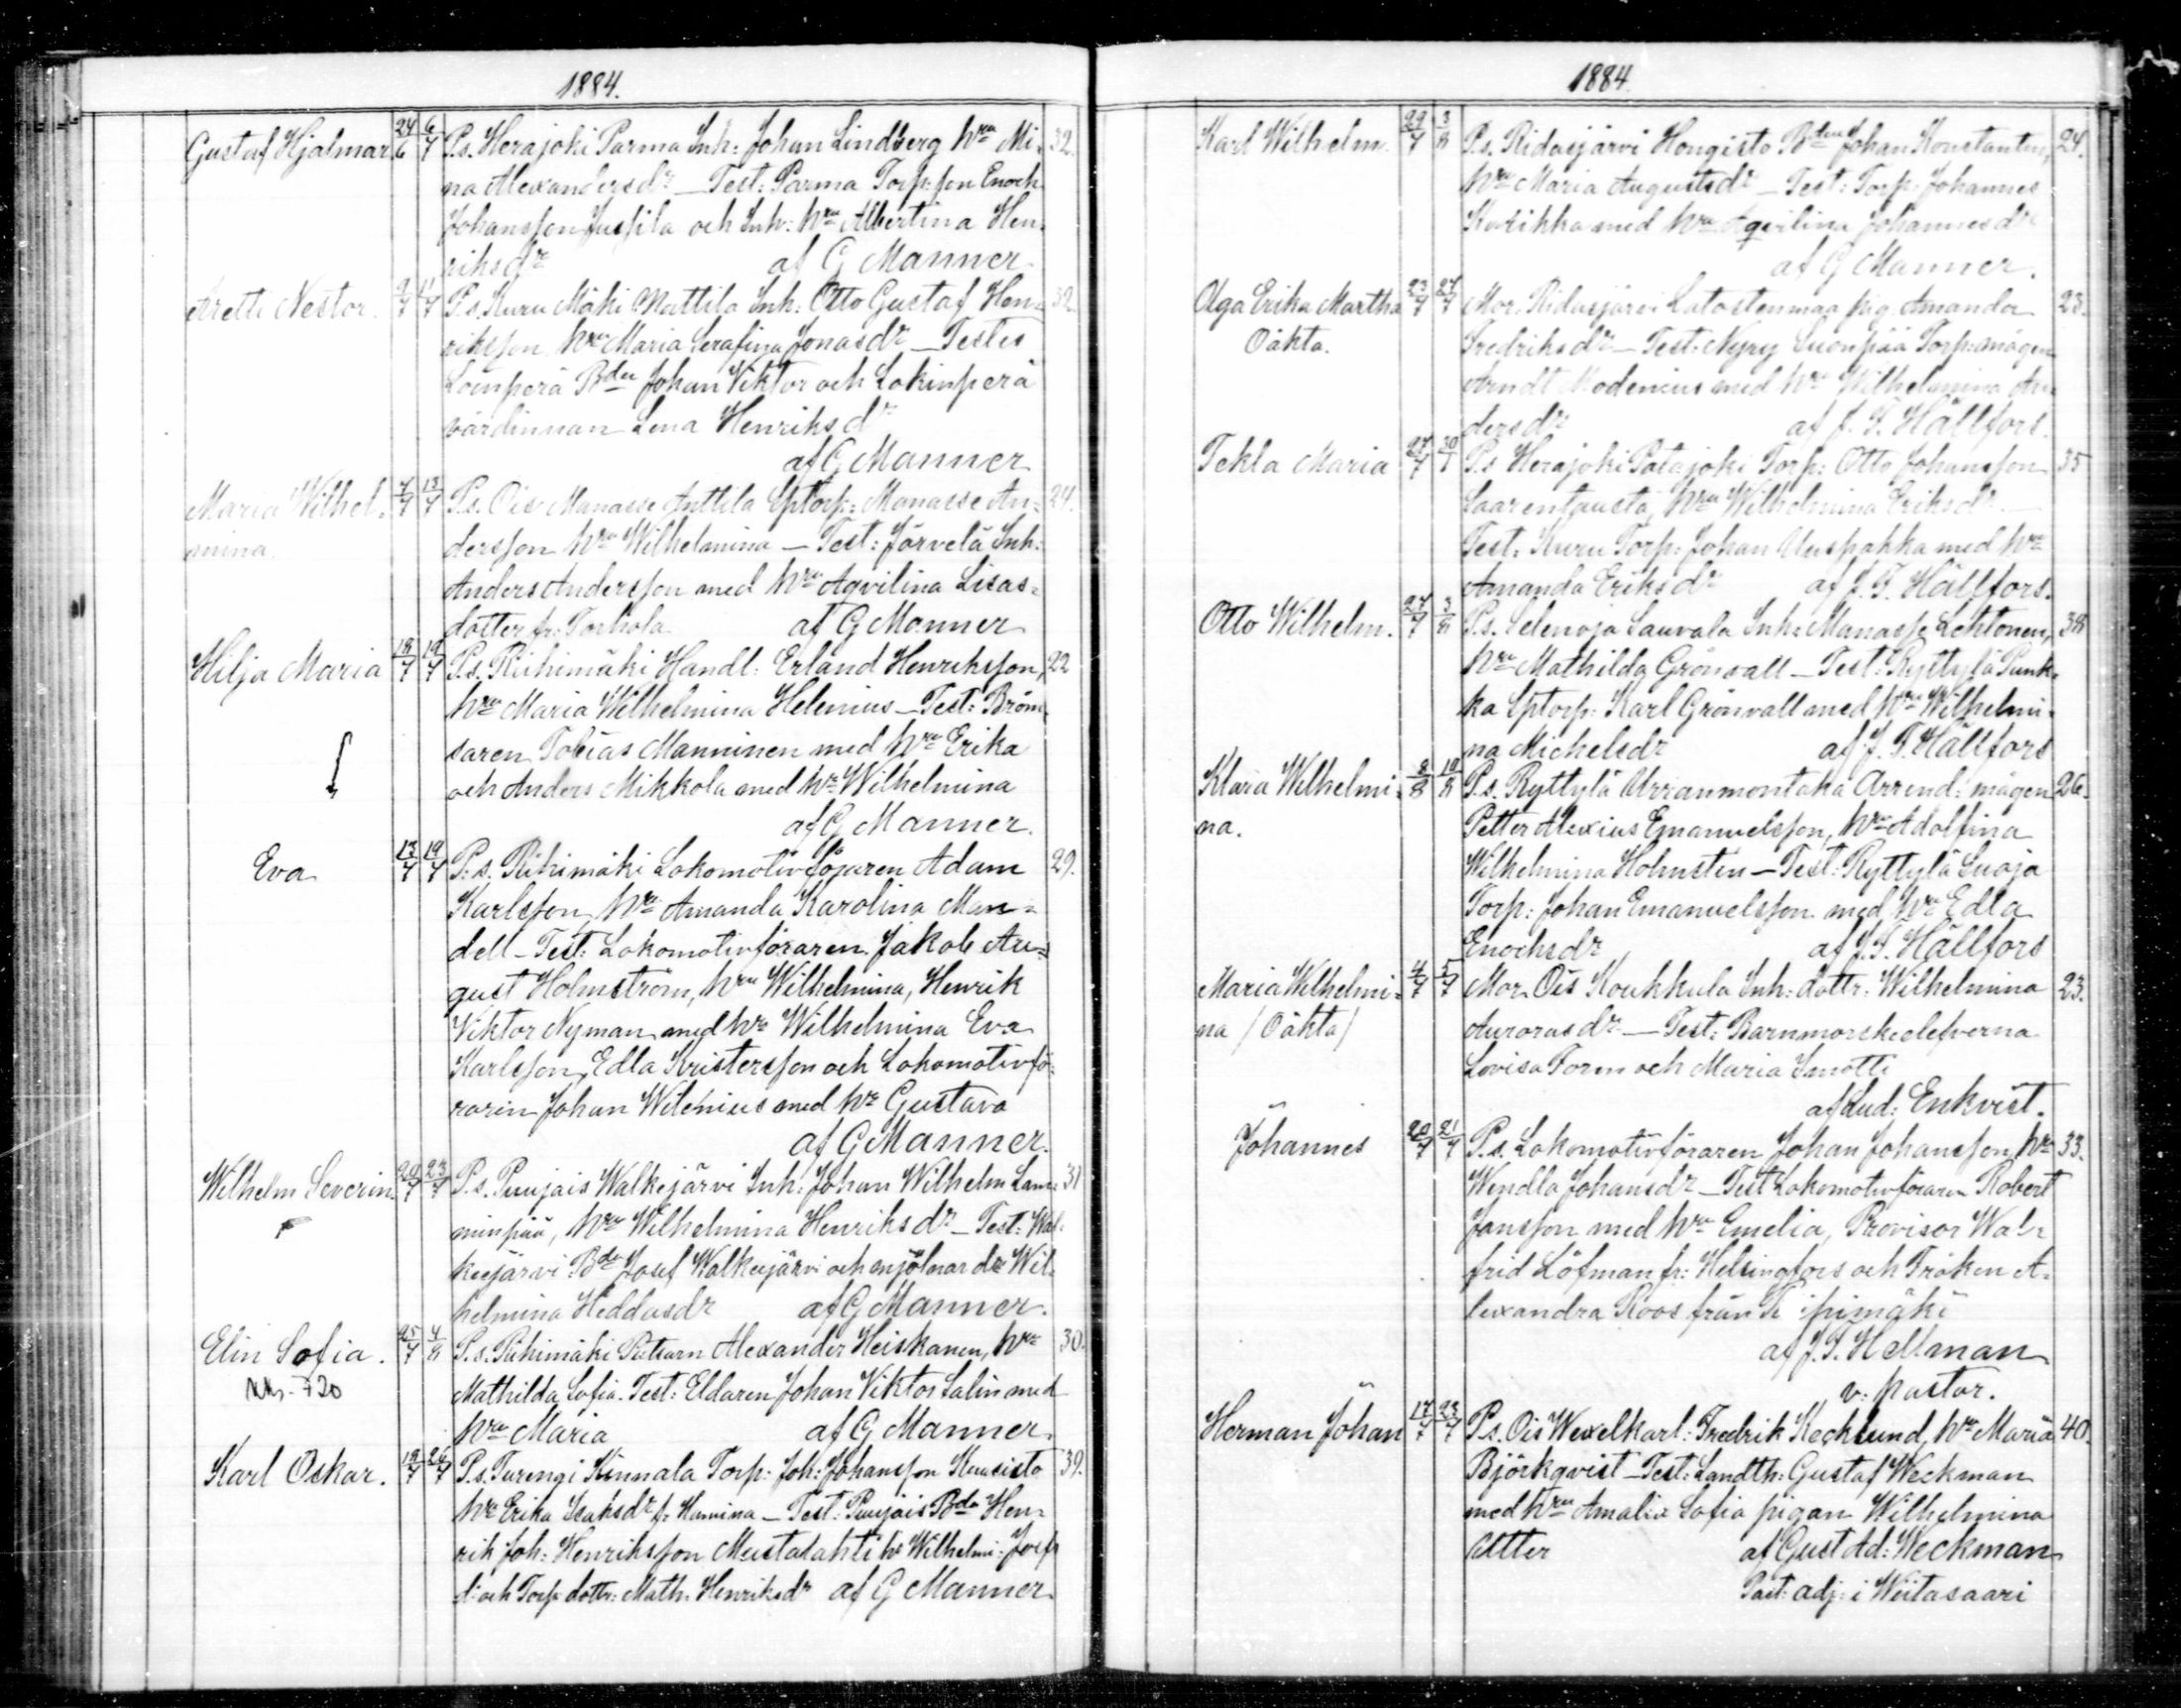 1884.
Gustaf Hjalmar 24/6 6/7 P.s. Herajoki Parma Inh: Johan Lindberg hru Mi- 32.
na Alexandersdr — Test: Parma Torp:son Enoch
Johansson Jussila och Inh: hru Albertina Hen-
riksdr af G Manner
Antti Nestor. 9/7 11/7 P.s. Kuru Mäki Mattila Inh: Otto Gustaf Hen- 32
riksson, hru Maria Serafina Jonasdr — Testes
Bden Johan Viktor och Lokinperä
värdinnan Lena Henriksdr
af G Manner
Maria Wilhel- 7/7 13/7 P.s. Ois Manasse Anttila Sptorp: Manasse An- 24.
mina dersson hru Wilhelmina — Test: Järvelä Inh:
Anders Andersson med hru Aqvilina Lisas-
dotter fr: Torhola af G Manner
Hilja Maria 18/7 19/7 P.s. Riihimäki Handl: Erland Henriksson, 22
hru Maria Wilhelmina Helenius — Test: Bröm-
saren Tobias Manninen med hru Erika
och Anders Mikkola med hr Wilhelmina
af G Manner.
Eva 13/7 19/7 P.s. Riihimäki Lokomotivföraren Adam 29.
Karlsson, hru Amanda Karolina Man-
dell — Test: Lokomotivföraren Jakob Au-
gust Holmström, hru Wilhelmina, Henrik
Viktor Nyman med hr Wilhelmina Eva
Karlsson, Edla Kristersson och Lokomotivfö-
rarin Johan Wilenius med hr Gustava
af G Manner.
Wilhelm Severin. 20/7 23/7 P.s. Puujais Walkejärvi Inh: Johan Wilhelm Lam- 31
minpää, hru Wilhelmina Henriksdr — Test: Wal-
keejärvi Bde Josef Walkeejärvi och mjölnar dr Wil-
helmina Heddasdr af G Manner.
Elin Sofia. 25/7 4/8 P.s. Riihimäki Putsarn Alexander Heiskanen, hru 30.
720 Mathilda Sofia. Test: Eldaren Johan Viktor Salin med
hru Maria af G Manner.
Karl Oskar. 19/7 26/7 P.s. Turengi Kinnala Torp: Joh: Johansson Kuusisto 39.
hr Erika Isaksdr fr Hamina — Test: Puujais Bde Hen-
rik Joh: Henriksson Mustalahti hr Wilhelmi: Josefs
d: och Torp dottr: Math. Henriksdr af G Manner
1884
Karl Wilhelm. 29/7 3/8 P.s. Ridasjärvi Hongisto Bden Johan Konstantin, 24.
hru Maria Augustsdr — Test: Torp: Johannes
med hru Aqvilina Johannesdr
af G Manner.
Olga Erika Martha 23/7 27/7 Mor. Ridasjärvi Latostenmaa pig. Amanda 23.
Oäkta. Fredriksdr — Test: Nyry Suonpää Torp:mågen
Arndt Modenius med hru Wilhelmina An-
dersdr af J. F. Hällfors.
Tekla Maria 27/7 30/7 P.s Herajoki Patajoki Torp: Otto Johansson 35
Saarentausta, hru Wilhelmina Eriksdr —
Test: Kuru Torp: Johan Uuspakka med hru
Amanda Eriksdr af J. F. Hällfors.
Otto Wilhelm. 27/7 3/8 P.s. Selenoja Sauvala Inh: Manasse Lehtonen, 38
hru Mathilda Grönvall — Test: Ryttylä Punk-
ka Sptorp: Karl Grönvall med hru Wilhelmi-
na Michelsdr af J. F. Hällfors
Klara Wilhelmi- 8/8 10/8 P.s. Ryttylä Arrend: mågen 26.
na. Petter Alexius Emanuelsson, hru Adolfina
Wilhelmina Holmsten — Test: Ryttylä Suoja
Torp: Johan Emanuelsson med hru Edla
Enochsdr af J. F. Hällfors
Maria Wilhelmi- 4/7 5/7 Mor. Ois Koukkula Inh: dottr. Wilhelmina 23.
na /Oäkta/ Aurorasdr. — Test: Barnmorskeelefverna
Lovisa Form och Maria Smotti
af Lud: Enkvist.
Johannes 20/7 21/7 P.s. Lokomotivföraren Johan Johansson hru 33.
Wendla Johansdr — Test Lokomotivföraren Robert
Jansson med hru Emelia, Provisor Wal-
frid Löfman fr: Helsingfors och Fröken A-
lexandra Roos från
af J. F. Hellman
v. pastor.
Herman Johan 17/7 23/7 P.s. Ois Wexelkarl: Fredrik Kecklund, hru Maria 40.
Björkqvist — Test: Landth: Gustaf Weckman
med hru Amalia Sofia pigan Wilhelmina
Altter af Gust Ad: Weckman
Past. adj: i Wiitasaari